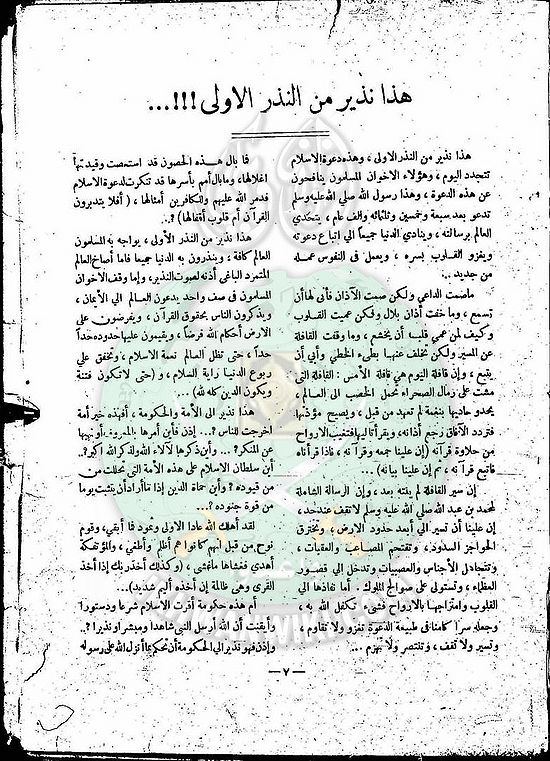 هذا نذير من النذر الاولى !!!...
هذا نذير من النذر الاولى ، وهذه دعوة الاسلام
تتجدد اليوم ، وهؤلاء الاخوان المسلمون ينافحون
عن هذه الدعوة ، وهذا رسول الله صلى الله عليه وسلم
تدعو بعد سبعة وخمسين وثلثمائة والف عام ، يتحدى
العالم برسالته ، وينادى الدنيا جميعاً الى اتباع دعوته
ويغزو القلوب بسره ، ويعمل فى النفوس عمله
من جديد ..
ماصمت الداعى ولكن صمت الآذان فأنى لها أن
تسمع ، وما خفت أذان بلال ولكن عميت القلوب
وكيف لمن عمى قلبه أن يخشع ، وما وقفت القافلة
عن المسير ولكن تخلف عنها بطىء الخطى وأبى أن
يتبع ، وإن قافلة اليوم هى قافة الأمس : القافلة التى
مشت على رمال الصحراء تحمل الخصب الى العالم ،
يحدو حاديها بنغمة لم تعهد من قبل ، ويصيح مؤذنها
فتردد الآفاق رجع أذانه ، ويقرأ تاليها فتغيب الارواح
من حلاوة قرآنه (إن علينا جمعه وقرآنه ، فاذا قرأناه
فاتبع قرآنه ، ثم إن علينا بيانه) ...
إن سير القافلة لم ينته بعد ، وإن الرسالة الشاملة
لمحمد بن عبد الله صلى الله عليه وسلم لا تقف عند حد ،
إن علينا أن تسير الى أبعد حدود الارض ، وتخترق
الحواجز السدود ، وتقتحم المصاعب والعقبات ،
وتتجادل الأجناس والعصبيات وتدخل الى قصور
العظماء ، وتستولى على صوالج الملوك . أما نفاذها الى
القلوب وامتزاجها بالارواح فشىء تكفل الله به ،
وجعله سراً كامنا فى طبيعة الدعوة تغزو ولا تقاوم ،
وتسير ولا تقف ، وتنتصر ولا تهزم ...
فما بال هذه الحصون قد استعصت وقيدتها
اغلالها ، ومابال أمم بأسرها قد تنكرت لدعوة الاسلام
فدمر الله عليهم وللكافرين أمثالها ، (أفلا يتدبرون
القرآن أم قلوب أقفالها) ؟..
هذا نذير من النذر الأولى ، يواجه به المسلمون
العالم كافة ، وينذرون به الدنيا جميعا فاما أصاخ العالم
المتمرد الباغى أذنه لصوت النذير ، وإما وقف الاخوان
المسلمون فى صف واحد يدعون العالم الى الأيمان ،
ويذكرون الناس بحقوق القرآن ، ويفرضون على
الارض أحكام الله فرضاً ، ويقيمون عليها حدوده حداً
حداً ، حتى تظل العالم نعمة الاسلام ، وتخفق على
ربوع الدنيا راية السلام ، و (حتى لا تكون فتنة
ويكون الدين كله لله) .
هذا نذير الى الأمة والحكومة ، أفهذه خير أمة
اخرجت للناس ؟... إذن فأين أمرها بالمعروف أو نهيها
عن المنكر ؟.. وأين ذكرها لآلاء الله ولذكر الله اكبر ؟..
أين سلطان الاسلام على هذه الأمة التى تحللت من
من قيوده ؟ وأين حماة الدين إذا ما أراد أن يتثبت يوما
من قوة جنوده ؟...
لقد أهلك الله عادا الاولى وثمود فما أبقى ، وقوم
نوح من قبل إنهم كانوا هم أظلم وأطغى ، والمؤتفكة
أهوى فغشاها ماغشى ، (وكذلك أخذ ربك إذا أخذ
القرى وهى ظالمة إن أخذه أليم شديد) ...
أم هذه حكومة أقرت الاسلام شرعا ودستورا
وأيقنت أن الله أرسل النبى شاهدا ومبشراً ونذيرا ؟..
وإذن فهو نذير الى الحكومة أن تحكم بما أنزل الله على رسوله
—٧—